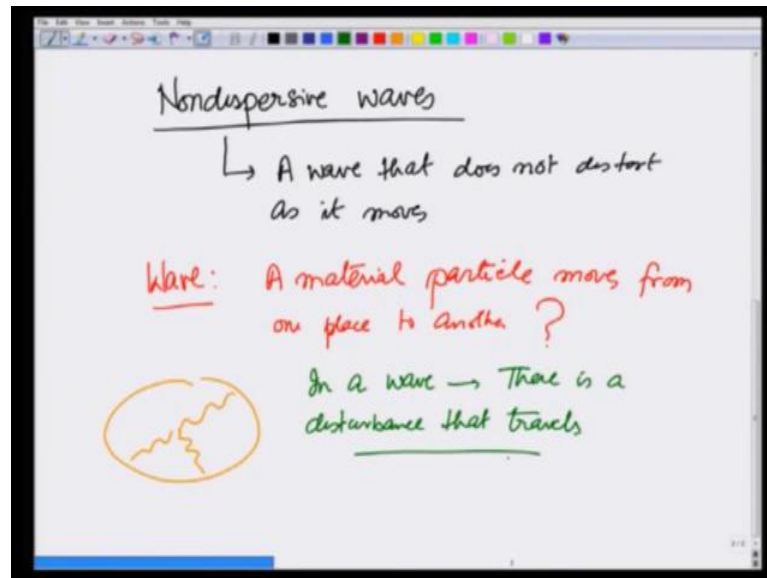 File Edit View Insert Actions Tools Help
Nondispersive waves
↳ A wave that does not distort
as it moves
Wave: A material particle moves from
one place to another ?
In a wave → There is a
disturbance that travels